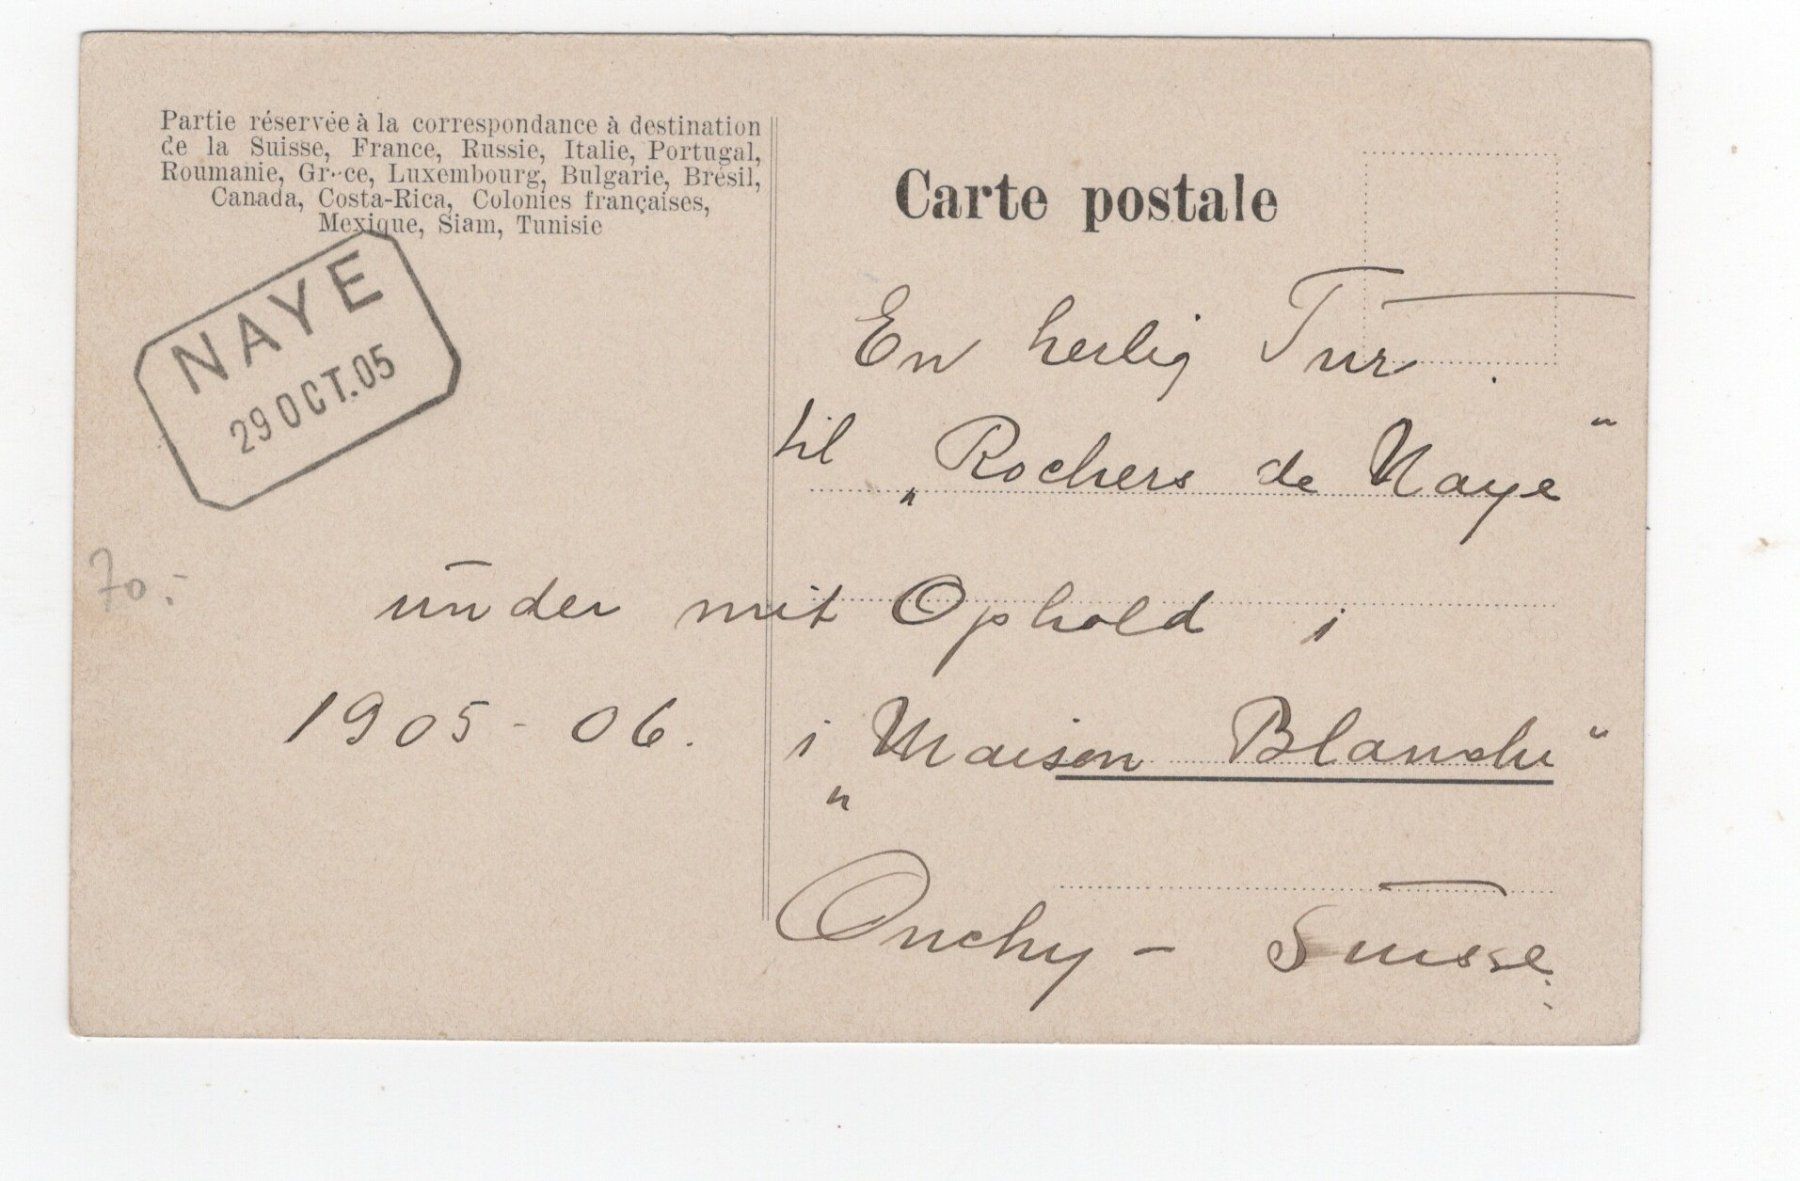 Partie réservée à la correspondance à destination
de la Suisse, France, Russie, Italie, Portugal,
Roumanie, Grèce, Luxembourg, Bulgarie, Brésil,
Canada, Costa-Rica, Colonies françaises,
Mexique, Siam, Tunisie
NAYE
29 OCT. 05
70.-
Carte postale
En herlig Tur.
til „Rochers de Naye“
under mit Ophold i
1905-06. i „Maison Blanche“
Ouchy - Suisse.